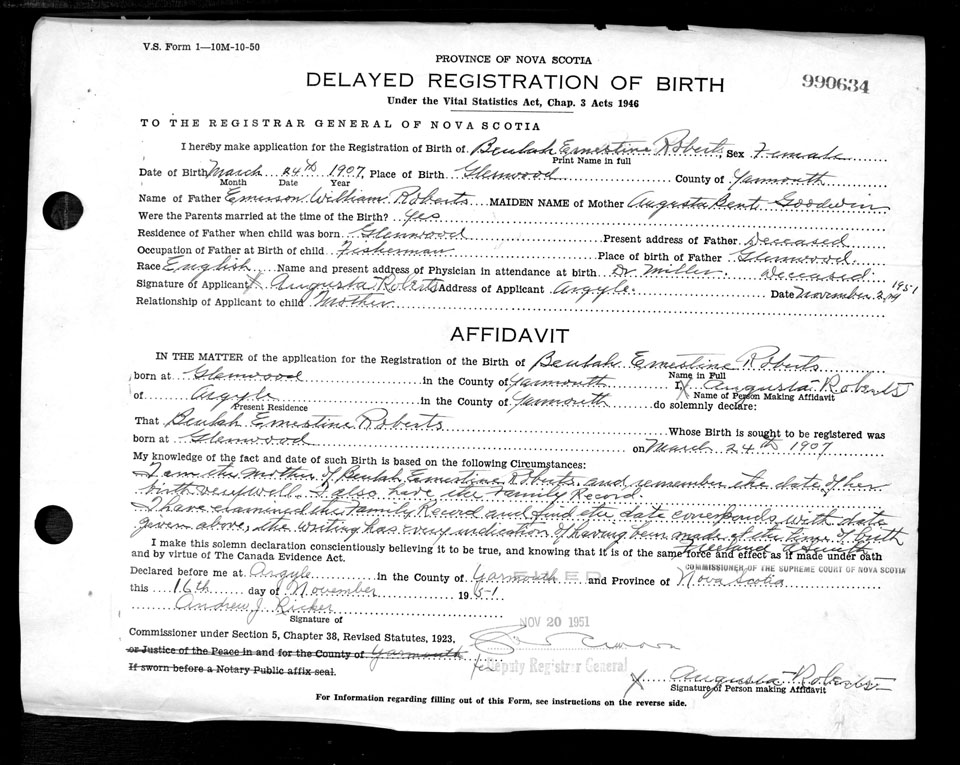 V.S. Form 1—10M-10-50
PROVINCE OF NOVA SCOTIA
DELAYED REGISTRATION OF BIRTH
990634
Under the Vital Statistics Act, Chap. 3 Acts 1946
TO THE REGISTRAR GENERAL OF NOVA SCOTIA
I hereby make application for the Registration of Birth of Beulah Ernestine Roberts, Sex Female
Print Name in full
Date of Birth March 24th 1907, Place of Birth Glenwood County of Yarmouth
Month Date Year
Name of Father Emerson William Roberts MAIDEN NAME of Mother Augusta Bent Goodwin
Were the Parents married at the time of the Birth? Yes
Residence of Father when child was born Glenwood Present address of Father Deceased
Occupation of Father at Birth of child Fisherman Place of birth of Father Glenwood
Race English Name and present address of Physician in attendance at birth Dr Miller deceased
Signature of Applicant X Augusta Roberts Address of Applicant Argyle. Date November 2nd 1951
Relationship of Applicant to child Mother
AFFIDAVIT
IN THE MATTER of the application for the Registration of the Birth of Beulah Ernestine Roberts
Name in Full
born at Glenwood in the County of Yarmouth I, X Augusta Roberts
Name of Person Making Affidavit
of Argyle in the County of Yarmouth do solemnly declare:
Present Residence
That Beulah Ernestine Roberts Whose Birth is sought to be registered was
born at Glenwood on March 24th 1907
My knowledge of the fact and date of such Birth is based on the following Circumstances:
I am the mother of Beulah Ernestine Roberts and remember the date of her
birth very well. I also have the Family Record
I have examined the Family Record and find the date corresponds with date
given above, the writing has every indication of having been made at the time of birth
I make this solemn declaration conscientiously believing it to be true, and knowing that it is of the same force and effect as if made under oath
and by virtue of The Canada Evidence Act.
COMMISSIONER OF THE SUPREME COURT OF NOVA SCOTIA
Declared before me at Argyle in the County of Yarmouth and Province of Nova Scotia
FILED
this 16th day of November 1951
Andrew J. Ricker
Signature of
NOV 20 1951
Commissioner under Section 5, Chapter 38, Revised Statutes, 1923,
or Justice of the Peace in and for the County of Yarmouth
Deputy Registrar General
If sworn before a Notary Public affix seal.
X Augusta Roberts
Signature of Person making Affidavit
For Information regarding filling out of this Form, see instructions on the reverse side.